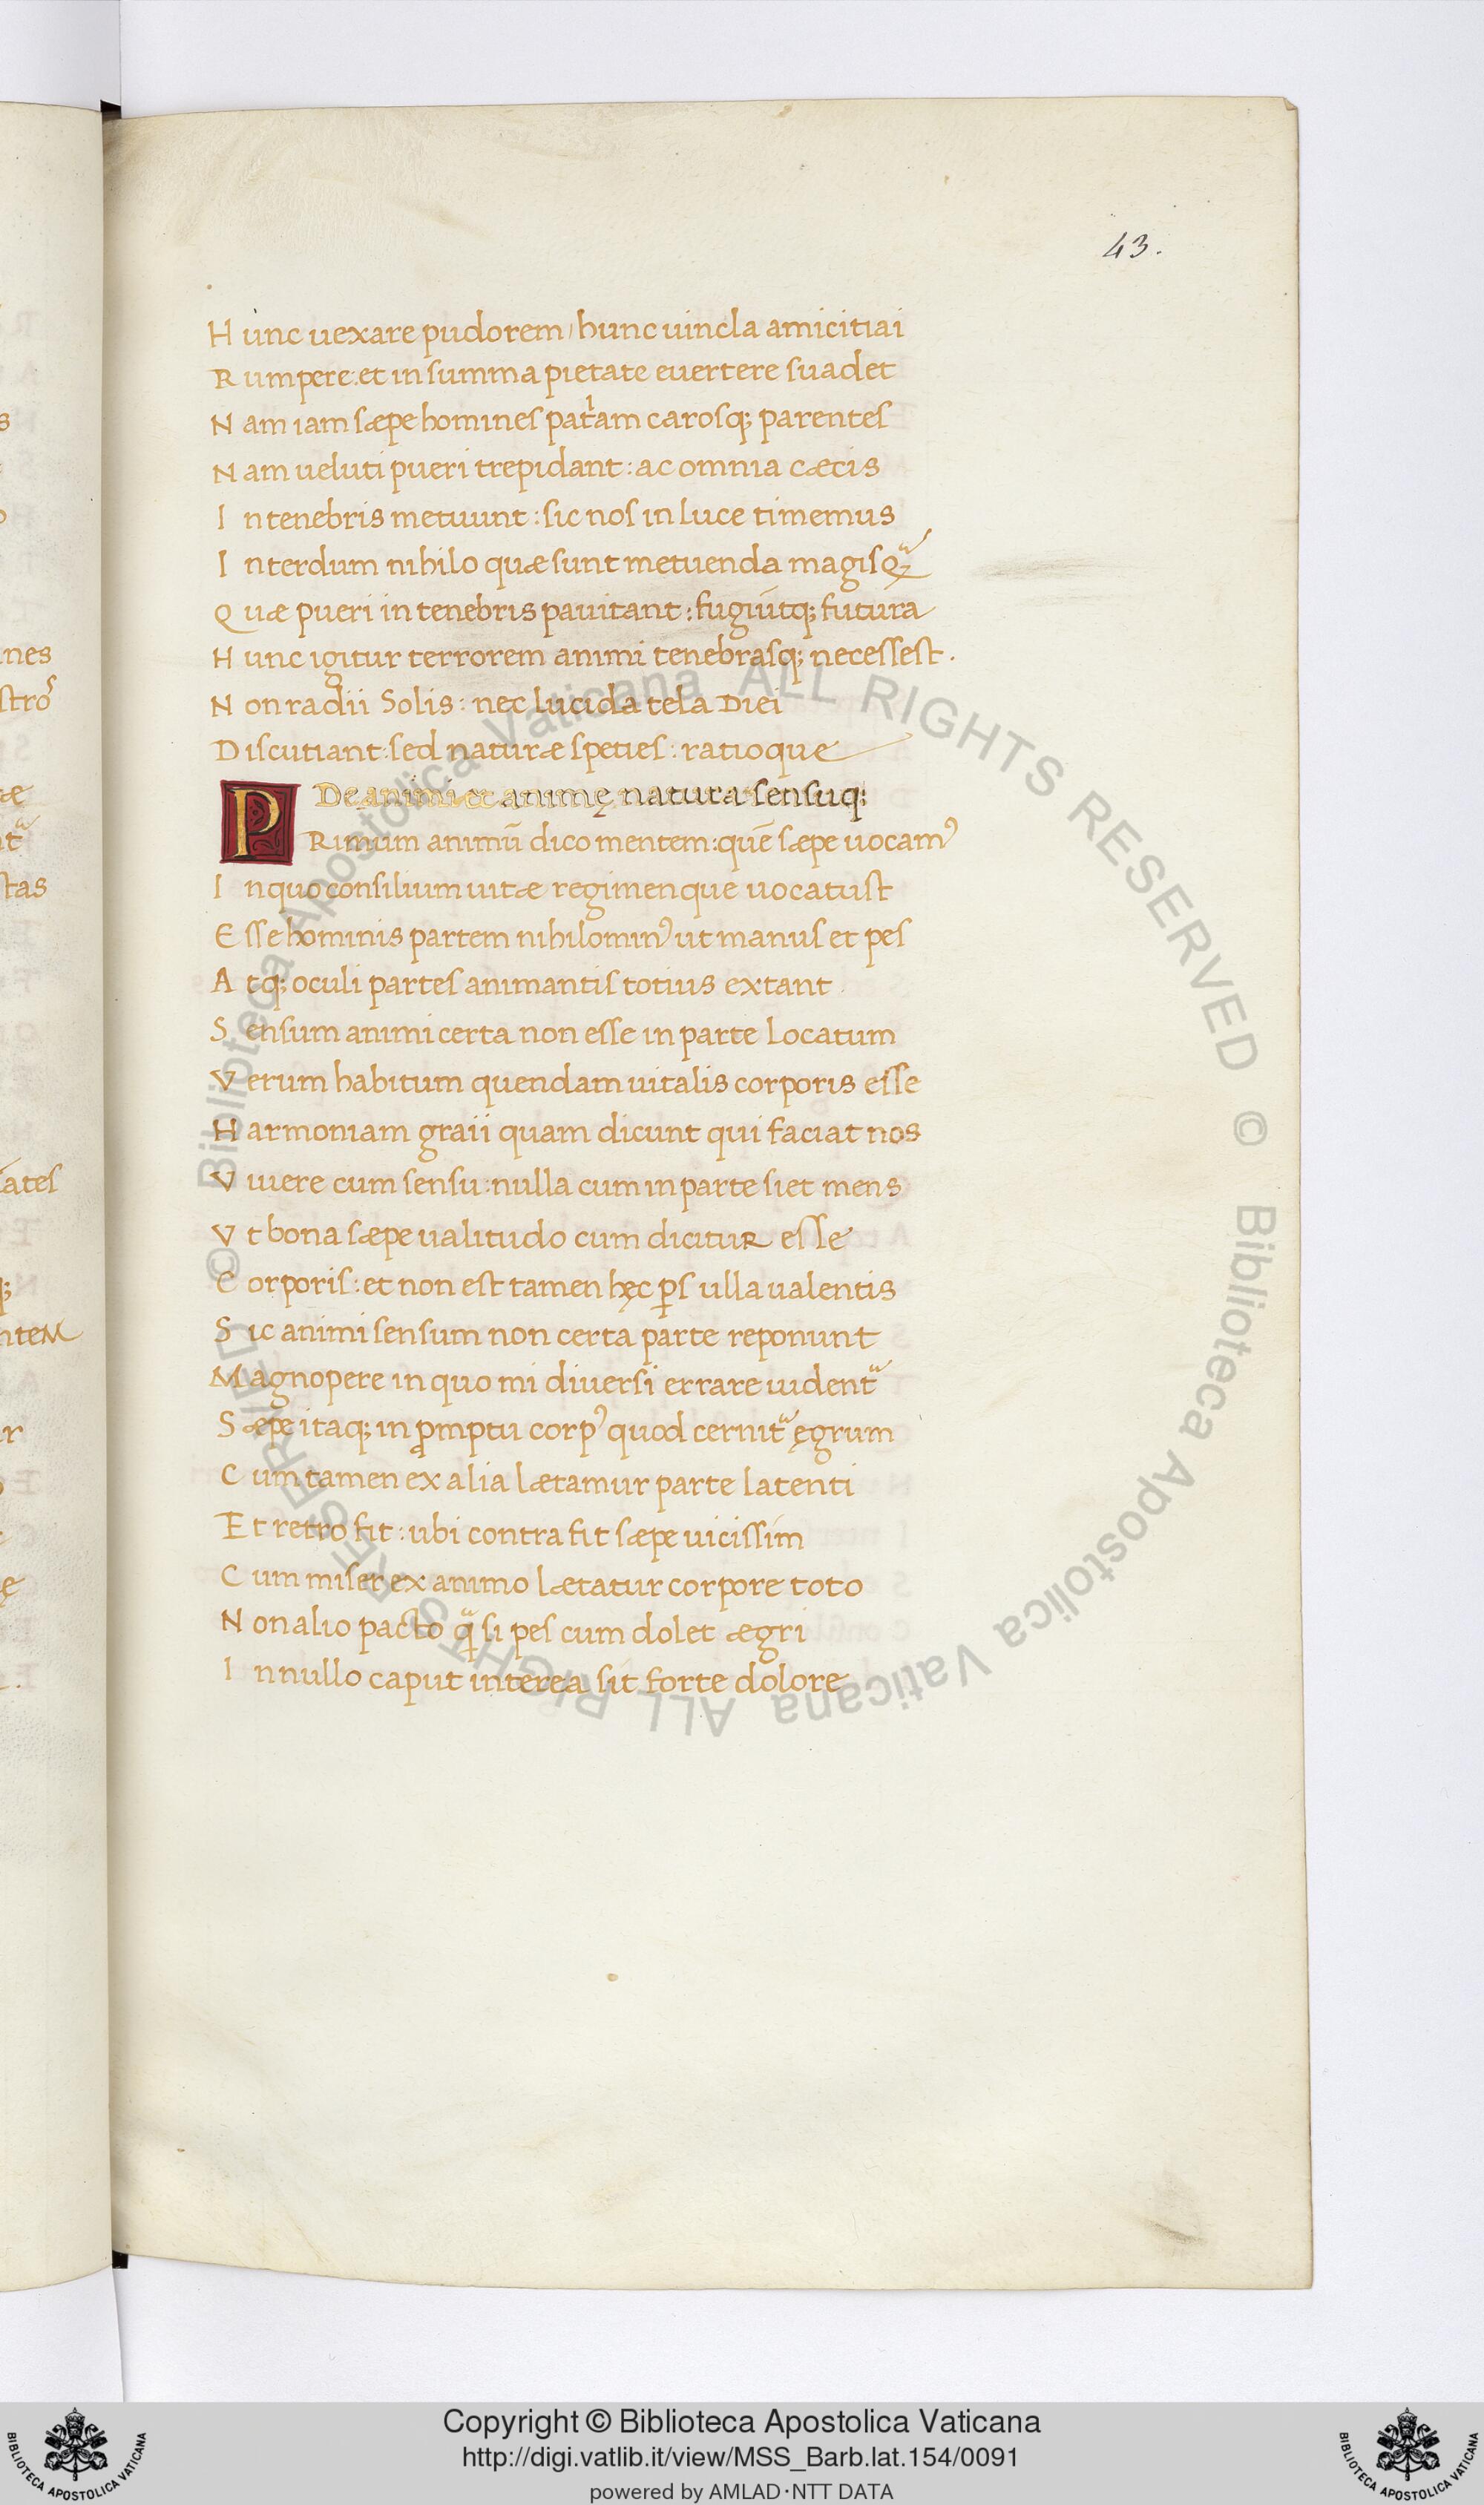 43.
Hunc uexare pudorem / hunc uincla amicitiai
Rumpere: et in summa pietate euertere suadet
Nam iam sæpe homines patⁱam carosq; parentes
Nam ueluti pueri trepidant: ac omnia cæcis
In tenebris metuunt: sic nos in luce timemus
Interdum nihilo quæ sunt metuenda magis qᷓ
Quæ pueri in tenebris pauitant: fugiūtq; futura
Hunc igitur terrorem animi tenebrasq; necessest.
Non radii Solis: nec lucida tela Diei
Discutiant: sed naturæ speties: ratioque
De animi et animę natura sensuq;
PRimum animū dico mentem: quē sæpe uocamꝰ
In quo consilium uitæ regimenque uocatust
Esse hominis partem nihilominꝰ ut manus et pes
Atq; oculi partes animantis totius extant
Sensum animi certa non esse in parte locatum
Verum habitum quendam uitalis corporis esse
Harmoniam graii quam dicunt qui faciat nos
Viuere cum sensu: nulla cum in parte siet mens
Vt bona sæpe ualitudo cum dicitur esse
Corporis: et non est tamen hęc ꝑs ulla ualentis
Sic animi sensum non certa parte reponunt
Magnopere in quo mi diuersi errare uidentᷓ
Sæpe itaq; in ꝓmptu corpꝰ quod cernitᷓ ęgrum
Cum tamen ex alia lætamur parte latenti
Et retro fit: ubi contra fit sæpe uicissim
Cum miser ex animo lætatur corpore toto
Non alio pacto qᷓ si pes cum dolet ægri
In nullo caput interea sit forte dolore
© Biblioteca Apostolica Vaticana ALL RIGHTS RESERVED © Biblioteca Apostolica Vaticana ALL RIGHTS RESERVED
Copyright © Biblioteca Apostolica Vaticana
http://digi.vatlib.it/view/MSS_Barb.lat.154/0091
powered by AMLAD·NTT DATA
BIBLIOTECA APOSTOLICA VATICANA
BIBLIOTECA APOSTOLICA VATICANA